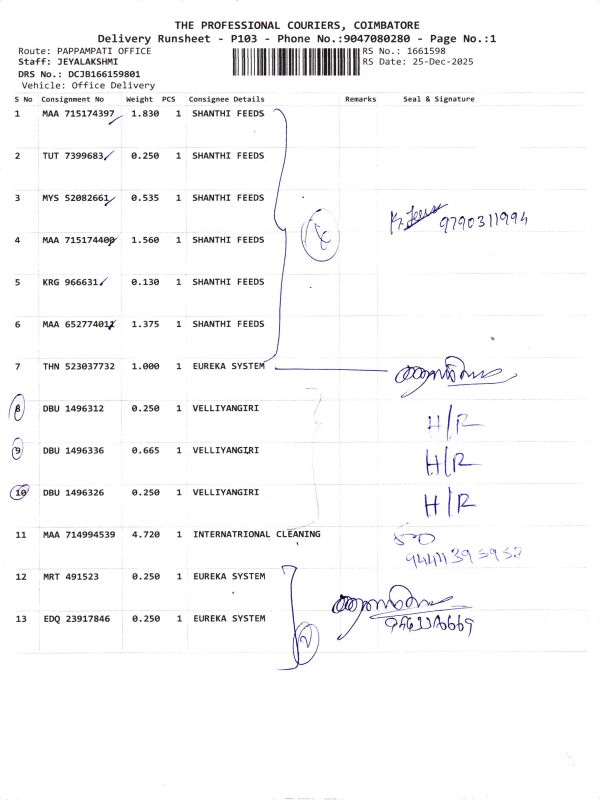 THE PROFESSIONAL COURIERS, COIMBATORE
Delivery Runsheet - P103 - Phone No.:9047080280 - Page No.:1
Route: PAPPAMPATI OFFICE RS No.: 1661598
Staff: JEYALAKSHMI RS Date: 25-Dec-2025
DRS No.: DCJB166159801
Vehicle: Office Delivery
S No Consignment No Weight PCS Consignee Details Remarks Seal & Signature
1 MAA 715174397 1.830 1 SHANTHI FEEDS
2 TUT 7399683 0.250 1 SHANTHI FEEDS
3 MYS 52082661 0.535 1 SHANTHI FEEDS
9790311994
4 MAA 715174400 1.560 1 SHANTHI FEEDS
5 KRG 966631 0.130 1 SHANTHI FEEDS
6 MAA 652774011 1.375 1 SHANTHI FEEDS
7 THN 523037732 1.000 1 EUREKA SYSTEM
8 DBU 1496312 0.250 1 VELLIYANGIRI H/R
9 DBU 1496336 0.665 1 VELLIYANGIRI H/R
10 DBU 1496326 0.250 1 VELLIYANGIRI H/R
11 MAA 714994539 4.720 1 INTERNATRIONAL CLEANING
12 MRT 491523 0.250 1 EUREKA SYSTEM
13 EDQ 23917846 0.250 1 EUREKA SYSTEM